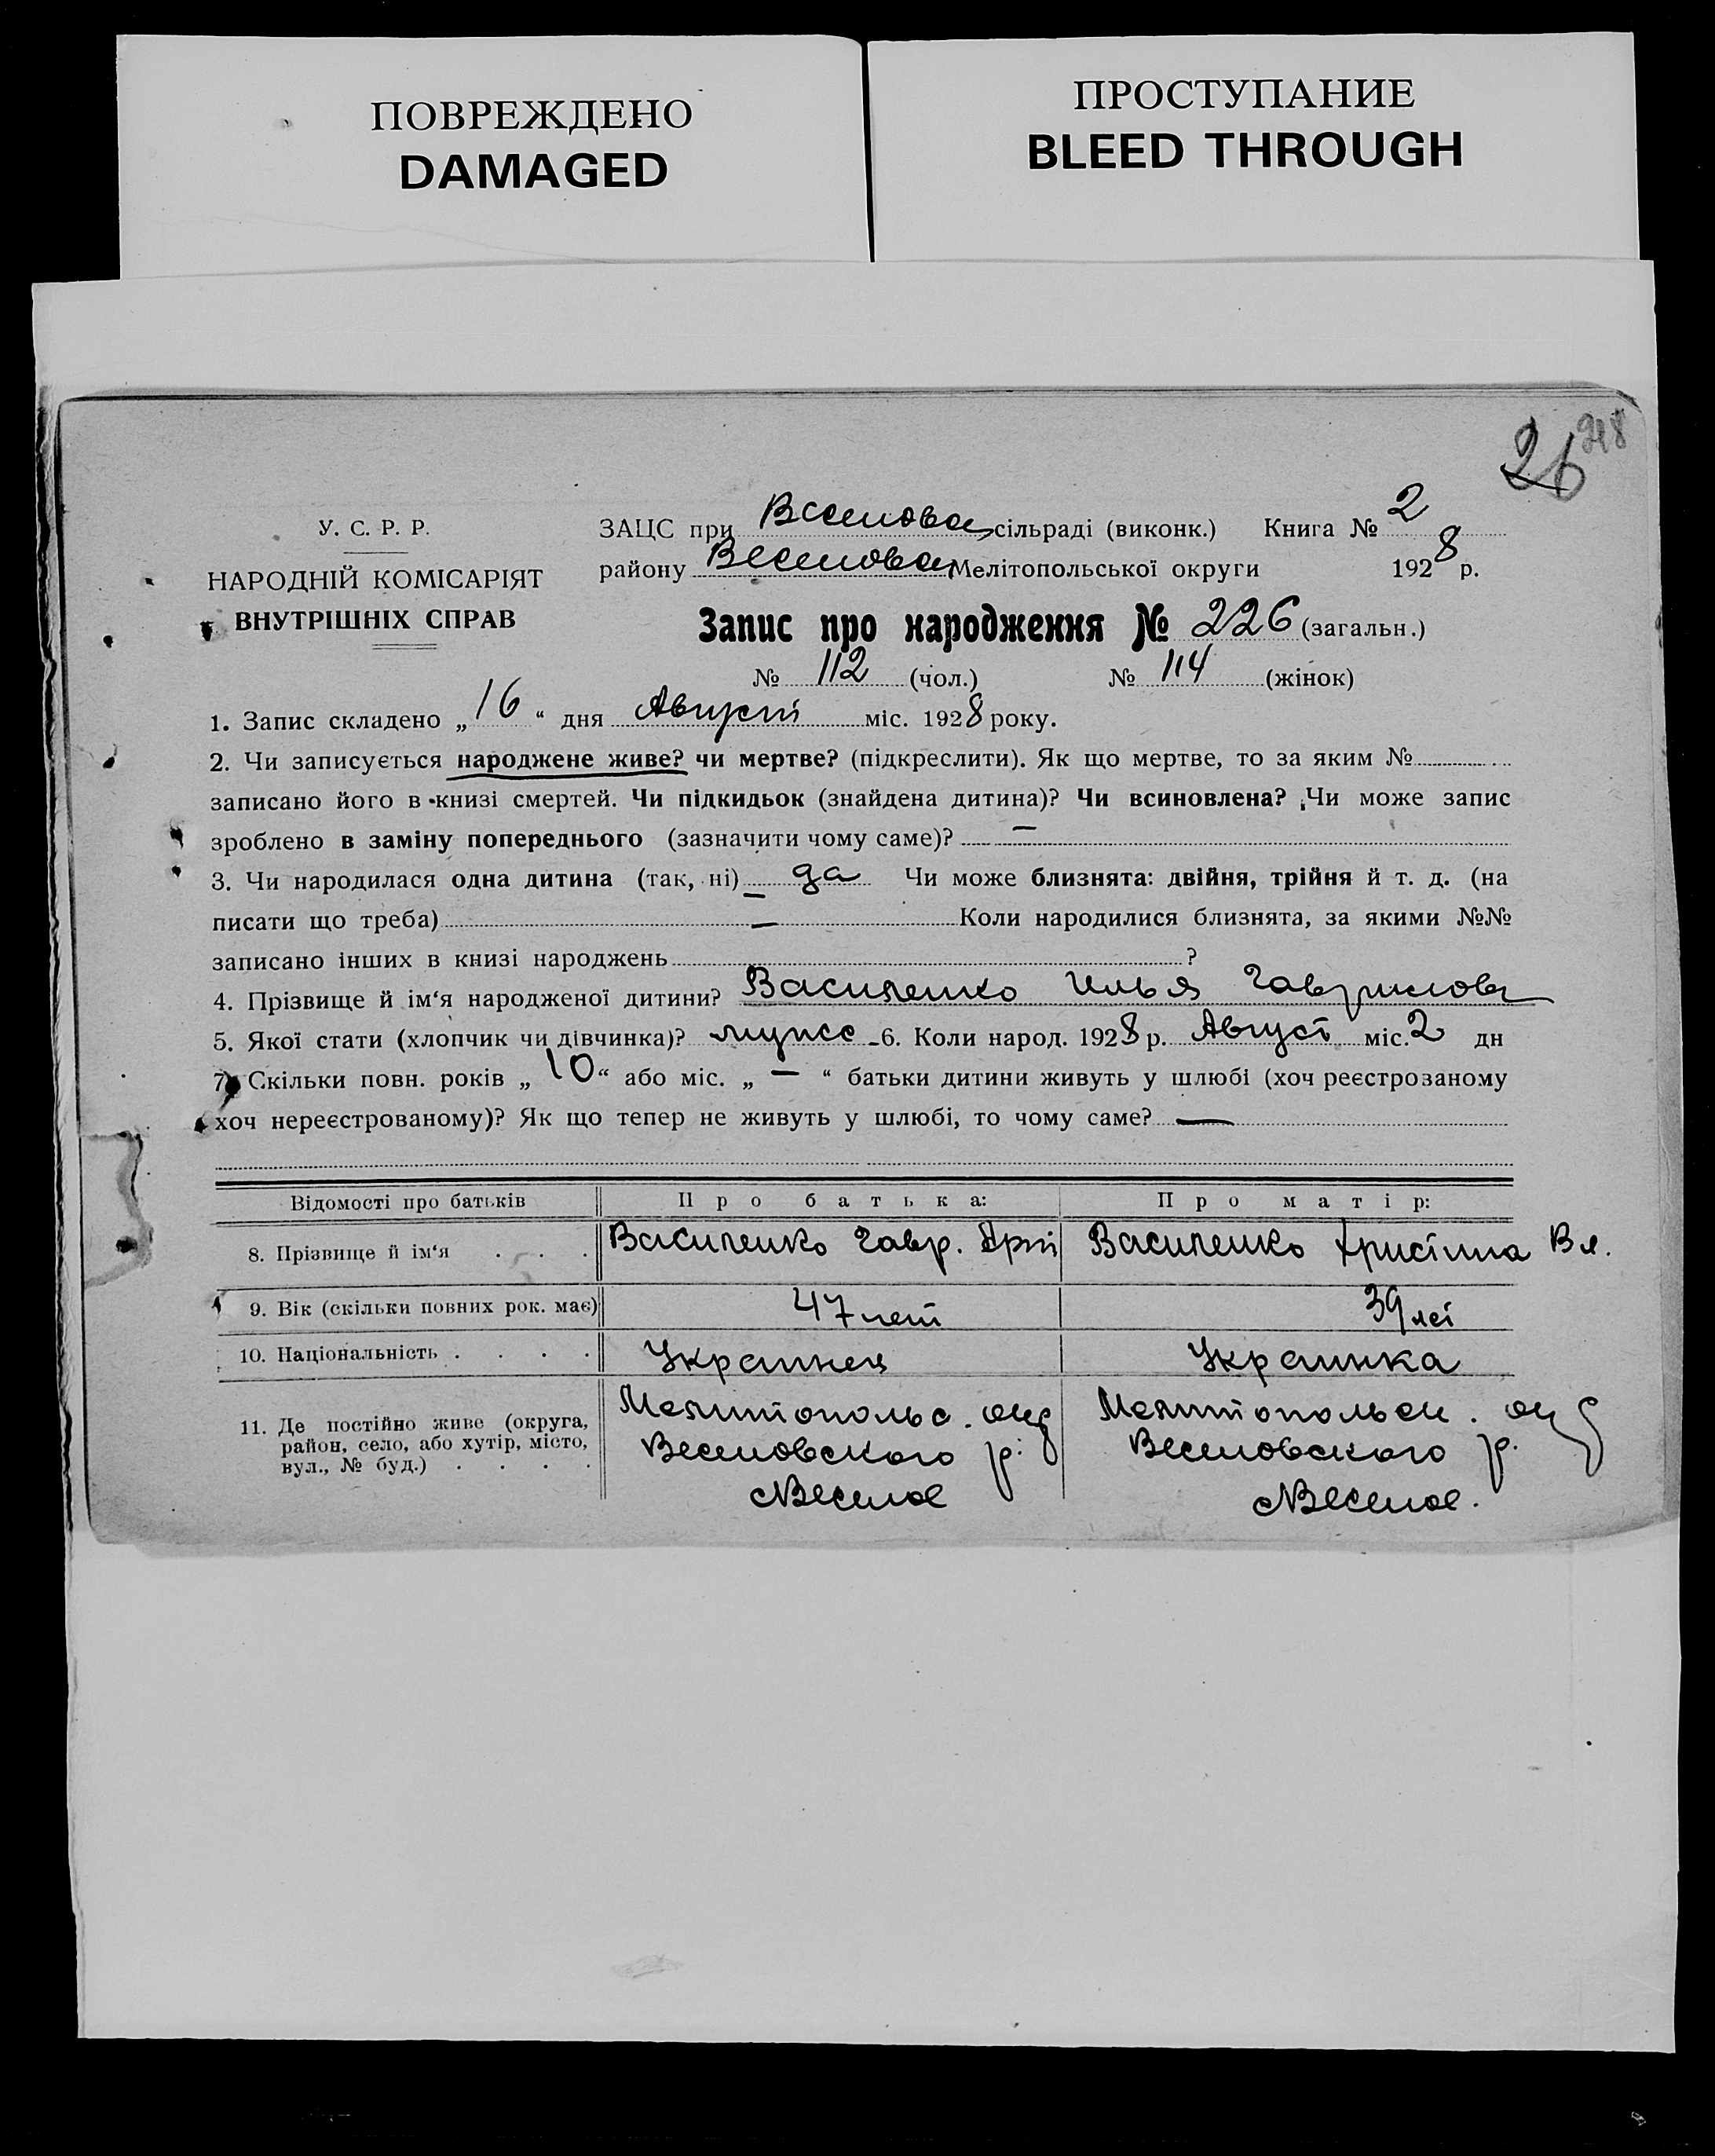 ПОВРЕЖДЕНО
DAMAGED
ПРОСТУПАНИЕ
BLEED THROUGH
26
У. С. Р. Р.
НАРОДНІЙ КОМІСАРІЯТ
ВНУТРІШНІХ СПРАВ
ЗАЦС при Веселовск сільраді (виконк.) Книга № 2
району Веселовск Мелітопольської округи 1928 р.
Запис про народження № 226 (загальн.)
№ 112 (чол.) № 114 (жінок)
1. Запис складено „16“ дня Август міс. 1928 року.
2. Чи записується народжене живе? чи мертве? (підкреслити). Як що мертве, то за яким №
записано його в книзі смертей. Чи підкидьок (знайдена дитина)? Чи всиновлена? Чи може запис
зроблено в заміну попереднього (зазначити чому саме)? —
3. Чи народилася одна дитина (так, ні) да Чи може близнята: двійня, трійня й т. д. (на
писати що треба) — Коли народилися близнята, за якими №№
записано інших в книзі народжень ?
4. Прізвище й ім‘я народженої дитини? Василенко Илья Гаврилов
5. Якої стати (хлопчик чи дівчинка)? мужс 6. Коли народ. 1928 р. Август міс. 2 дн
7. Скільки повн. років „10“ або міс. „—“ батьки дитини живуть у шлюбі (хоч реєстрозаному
хоч нереєстрованому)? Як що тепер не живуть у шлюбі, то чому саме? —
Відомості про батьків Про батька: Про матір:
8. Прізвище й ім‘я . . . Василенко Гавр. Арт Василенко Христина Вл.
9. Вік (скільки повних рок. має) 47 лет 39 лет
10. Національність . . . . Украинец Украинка
11. Де постійно живе (округа, район, село, або хутір, місто, вул., № буд.) . . . .
Мелитопольс. окр Мелитопольск. окр
Веселовского р. Веселовского р.
с Веселое с Веселое.